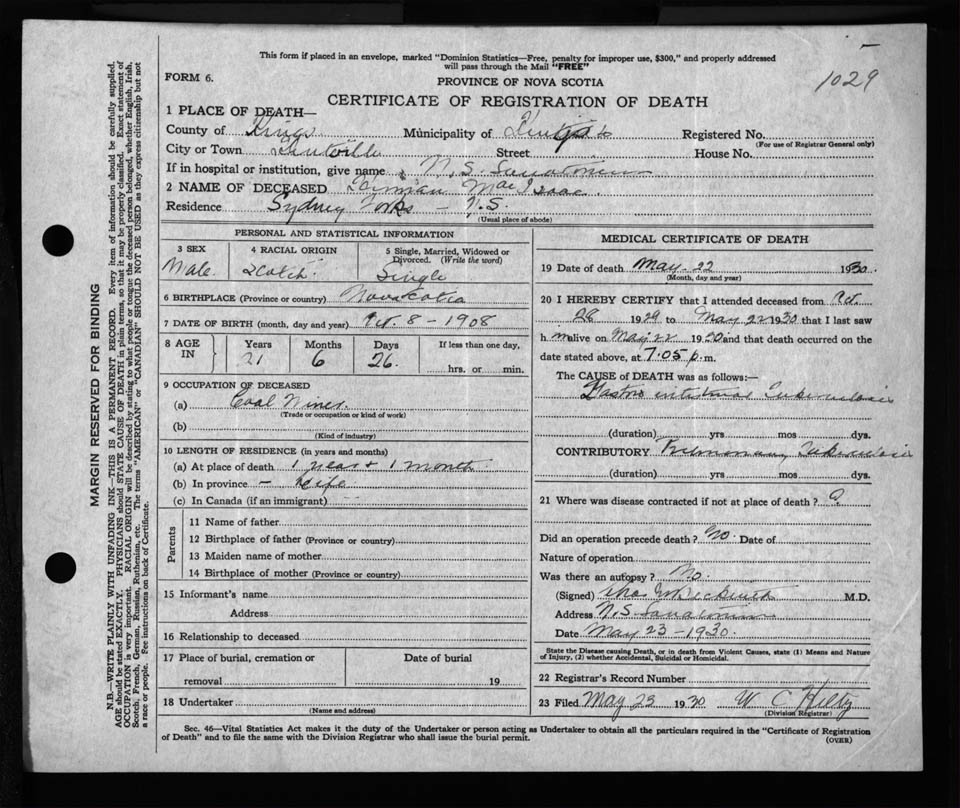 This form if placed in an envelope, marked "Dominion Statistics—Free, penalty for improper use, $300," and properly addressed
will pass through the Mail "FREE"
1029
FORM 6.
PROVINCE OF NOVA SCOTIA
CERTIFICATE OF REGISTRATION OF DEATH
1 PLACE OF DEATH—
County of Kings Municipality of Registered No.
(For use of Registrar General only)
City or Town Kentville Street House No.
If in hospital or institution, give name N.S. Sanatorium
2 NAME OF DECEASED MacIsaac
Residence Sydney Forks - N.S.
(Usual place of abode)
PERSONAL AND STATISTICAL INFORMATION
3 SEX 4 RACIAL ORIGIN 5 Single, Married, Widowed or Divorced. (Write the word)
Male. Scotch. Single
6 BIRTHPLACE (Province or country) Nova Scotia
7 DATE OF BIRTH (month, day and year) Oct. 8 - 1908
8 AGE IN Years Months Days If less than one day,
21 6 26. hrs. or min.
9 OCCUPATION OF DECEASED
(a) Coal Miner.
(Trade or occupation or kind of work)
(b)
(Kind of industry)
10 LENGTH OF RESIDENCE (in years and months)
(a) At place of death 1 year + 1 month
(b) In province - Life
(c) In Canada (if an immigrant)
Parents
11 Name of father
12 Birthplace of father (Province or country)
13 Maiden name of mother
14 Birthplace of mother (Province or country)
15 Informant's name
Address
16 Relationship to deceased
17 Place of burial, cremation or removal
Date of burial
19
18 Undertaker
(Name and address)
MEDICAL CERTIFICATE OF DEATH
19 Date of death May 22 1930.
(Month, day and year)
20 I HEREBY CERTIFY that I attended deceased from Oct.
28 1929 to May 22 1930 that I last saw
him alive on May 22 1930 and that death occurred on the
date stated above, at 7.05 p.m.
The CAUSE of DEATH was as follows:—
Gastro intestinal Tuberculosis
(duration) yrs mos dys.
CONTRIBUTORY Pulmonary Tuberculosis
(duration) yrs. mos. dys.
21 Where was disease contracted if not at place of death? ?
Did an operation precede death? No. Date of
Nature of operation
Was there an autopsy? No.
(Signed) M.D.
Address N.S. Sanatorium
Date May 23 - 1930.
State the Disease causing Death, or in death from Violent Causes, state (1) Means and Nature
of Injury, (2) whether Accidental, Suicidal or Homicidal.
22 Registrar's Record Number
23 Filed May 23 1930 W C Hiltz
(Division Registrar)
Sec. 46—Vital Statistics Act makes it the duty of the Undertaker or person acting as Undertaker to obtain all the particulars required in the "Certificate of Registration
of Death" and to file the same with the Division Registrar who shall issue the burial permit.
(OVER)
MARGIN RESERVED FOR BINDING
N.B.—WRITE PLAINLY WITH UNFADING INK—THIS IS A PERMANENT RECORD. Every item of information should be carefully supplied.
AGE should be stated EXACTLY. PHYSICIANS should STATE CAUSE OF DEATH in plain terms, so that it may be properly classified. Exact statement of
OCCUPATION is very important. RACIAL ORIGIN will be described by stating to what people or tongue the deceased person belonged, whether English, Irish,
Scotch, French, German, Russian, Ruthenian, etc. The terms "AMERICAN" or "CANADIAN" SHOULD NOT BE USED as they express citizenship but not
a race or people. See instructions on back of Certificate.